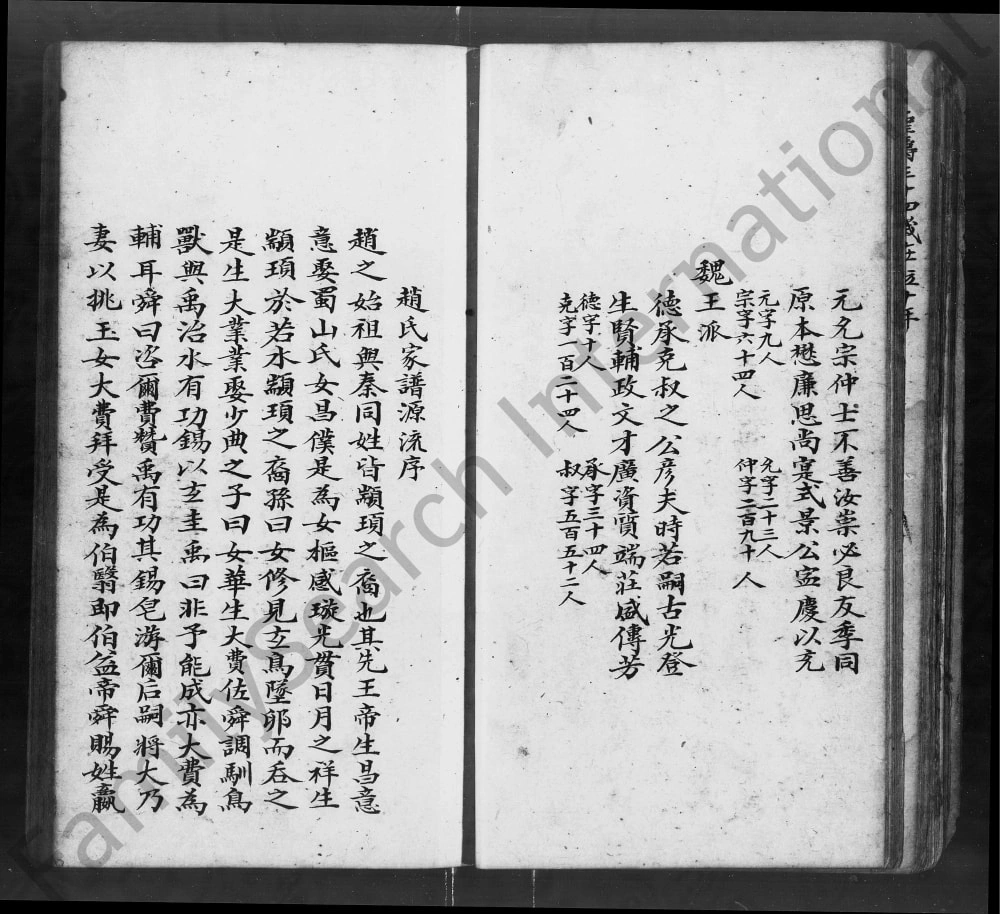 元允宗仲士不善汝崇必良友季同
原本懋廉思尚寔式景公宏慶以充
元字九人 允字二十三人
宗字六十四人 仲字二百九十人
魏王派
德承克叔之公彦夫時若嗣古光登
生賢輔政文才廣資質端莊盛傳芳
德字十人 承字三十四人
克字一百二十四人 叔字五百五十二人
趙氏家譜源流序
趙之始祖與秦同姓皆顓頊之裔也其先王帝生昌意
意娶蜀山氏女昌僕是為女樞感璇光貫日月之祥生
顓頊於若水顓頊之裔孫曰女修見玄鳥墜卵而吞之
是生大業業娶少典之子曰女華生大費佐舜調馴鳥
獸與禹治水有功錫以玄圭禹曰非予能成亦大費為
輔耳舜曰咨爾費贊禹有功其錫皂游爾后嗣將大乃
妻以挑玉女大費拜受是為伯翳即伯益帝舜賜姓嬴
FamilySearch International